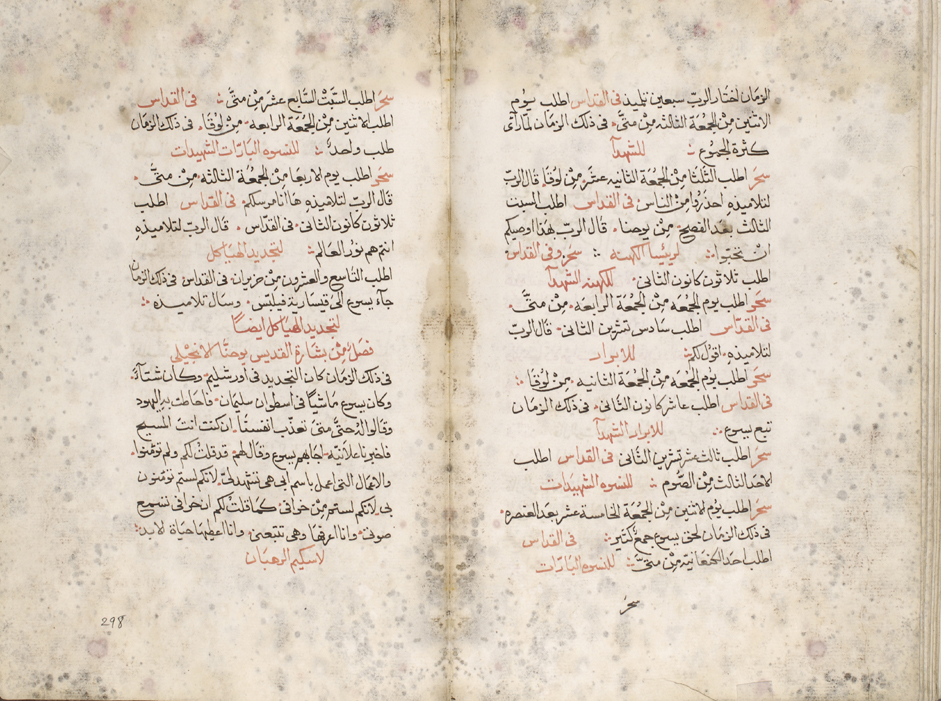 الزمان اختار الرب سبعين تلميذ في القداس اطلب يوم
الاثنين من الجمعة الثالثه من متى في ذلك الزمان لما راى
كثرة الجموع للشهدآ
سحر اطلب الثلثا من الجمعة الثانية عشر من لوقا قال الرب
لتلاميذه احذروا من الناس في القداس اطلب السبت
الثالث بعد الفصح من يوحنا قال الرب لهذا اوصيكم
ان تحبوا لرئيسا الكهنه سحر وفي القداس
اطلب ثلاثون كانون الثاني للكهنه الشهدآ
سحر اطلب يوم الجمعه من الجمعة الرابعه من متى
في القداس اطلب سادس تشرين الثاني قال الرب
لتلاميذه اقول لكم للابرار
سحر اطلب يوم الجمعه من الجمعة الثانيه من لوقا
في القداس اطلب عاشر كانون الثاني في ذلك الزمان
تبع يسوع للابرار الشهدآ
سحر اطلب ثالث عشر تشرين الثاني في القداس اطلب
الاحد الثالث من الصوم للنسوه الشهيدات
سحر اطلب يوم الاثنين من الجمعة الخامسة عشر بعد العنصره
في ذلك الزمان لحق يسوع جمع كثير في القداس
اطلب احد الكنعانية من متى للنسوه البارّات
سحر
سحر اطلب السبت السابع عشر من متى في القداس
اطلب الاثنين من الجمعة الرابعه من لوقا في ذلك الزمان
طلب واحد للنسوه البارّات الشهيدات
سحر اطلب يوم الاربعا من الجمعة الثالثه من متى
قال الرب لتلاميذه ها انا مرسلكم في القداس اطلب
ثلاثون كانون الثاني في القداس قال الرب لتلاميذه
انتم هم نور العالم لتجديد الهياكل
اطلب التاسع والعشرون من حزيران في القداس في ذلك الزمان
جآء يسوع الى قيسارية فيلبس وسال تلاميذه
لتجديد الهياكل ايضاً
فصل من بشارة القديس يوحنا الانجيلي
في ذلك الزمان كان التجديد في اورشليم وكان شتآء
وكان يسوع ماشياً في اسطوان سليمان فاحاطت به اليهود
وقالوا له حتى متى تعذب انفسنا ان كنت انت المسيح
فاخبرنا علانيه اجابهم يسوع وقال لهم قد قلت لكم ولم تؤمنوا
والاعمال التي اعمل باسم ابي هي تشهد لي لانكم لستم تؤمنون
بي لانكم لستم من خرافي كما قلت لكم ان خرافي تسمع
صوتي وانا اعرفها وهي تتبعني وانا اعطيها حياة الابد
لاسكيم الرهبان
298